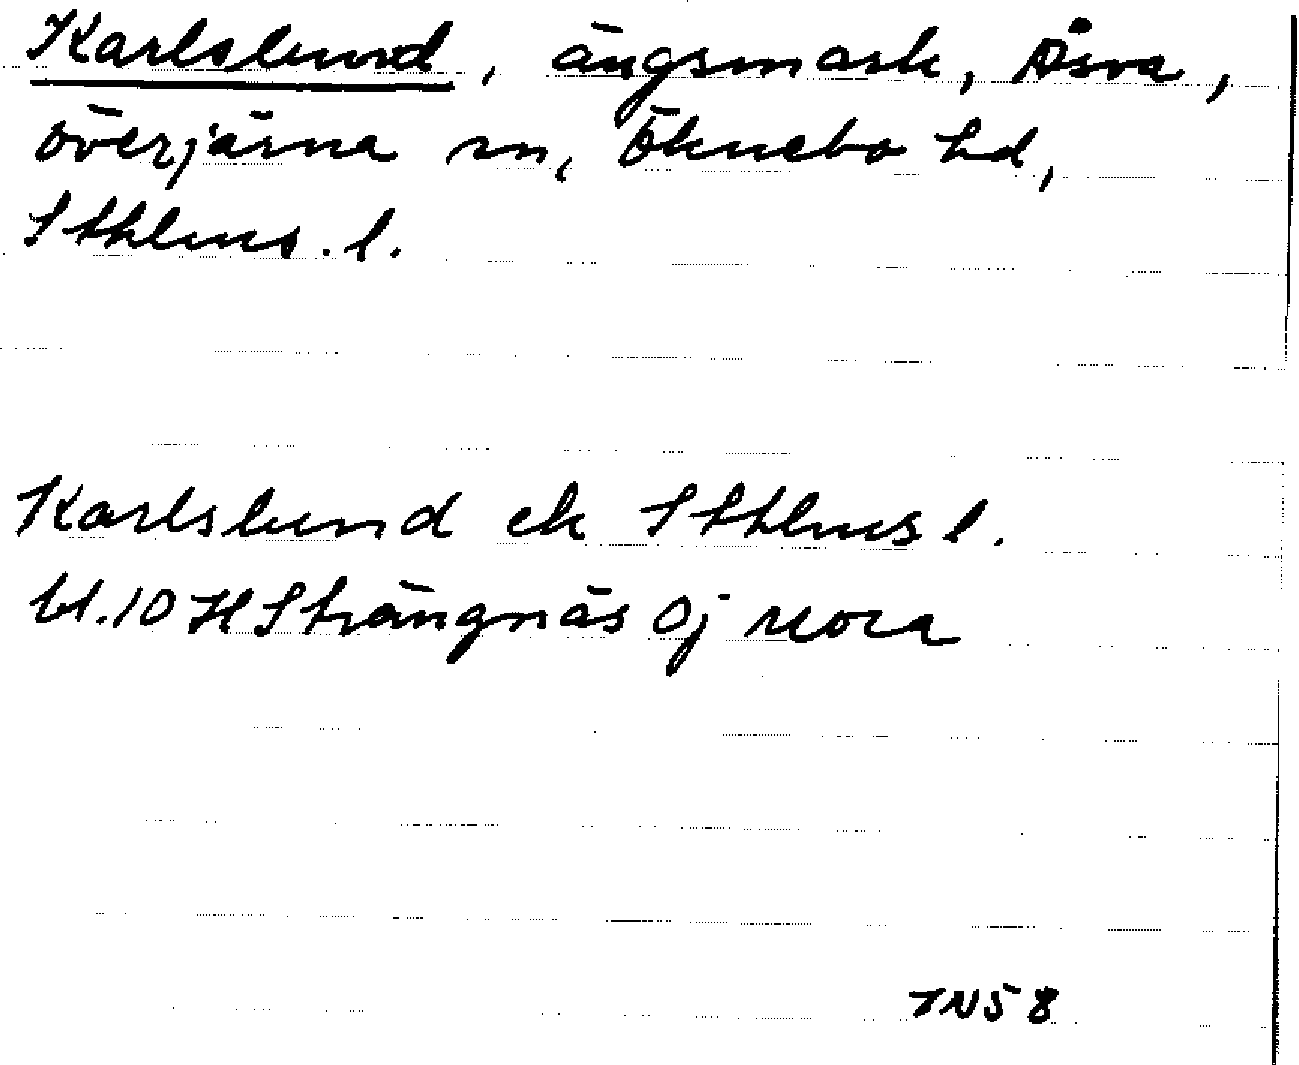 Karlslund, ängsmark, Åsva,
Överjärna sn, Öknebo hd,
Sthlms. l.
Karlslund ek Sthlms l.
bl. 10 H Strängnäs 0j Mora
TN58